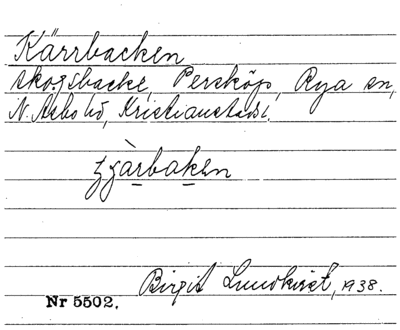 Kärrbacken
skogsbacke, Persköp, Rya sn,
N. Åsbo hd, Kristianstads l.
Birgit Lundkvist, 1938.
Nr 5502.